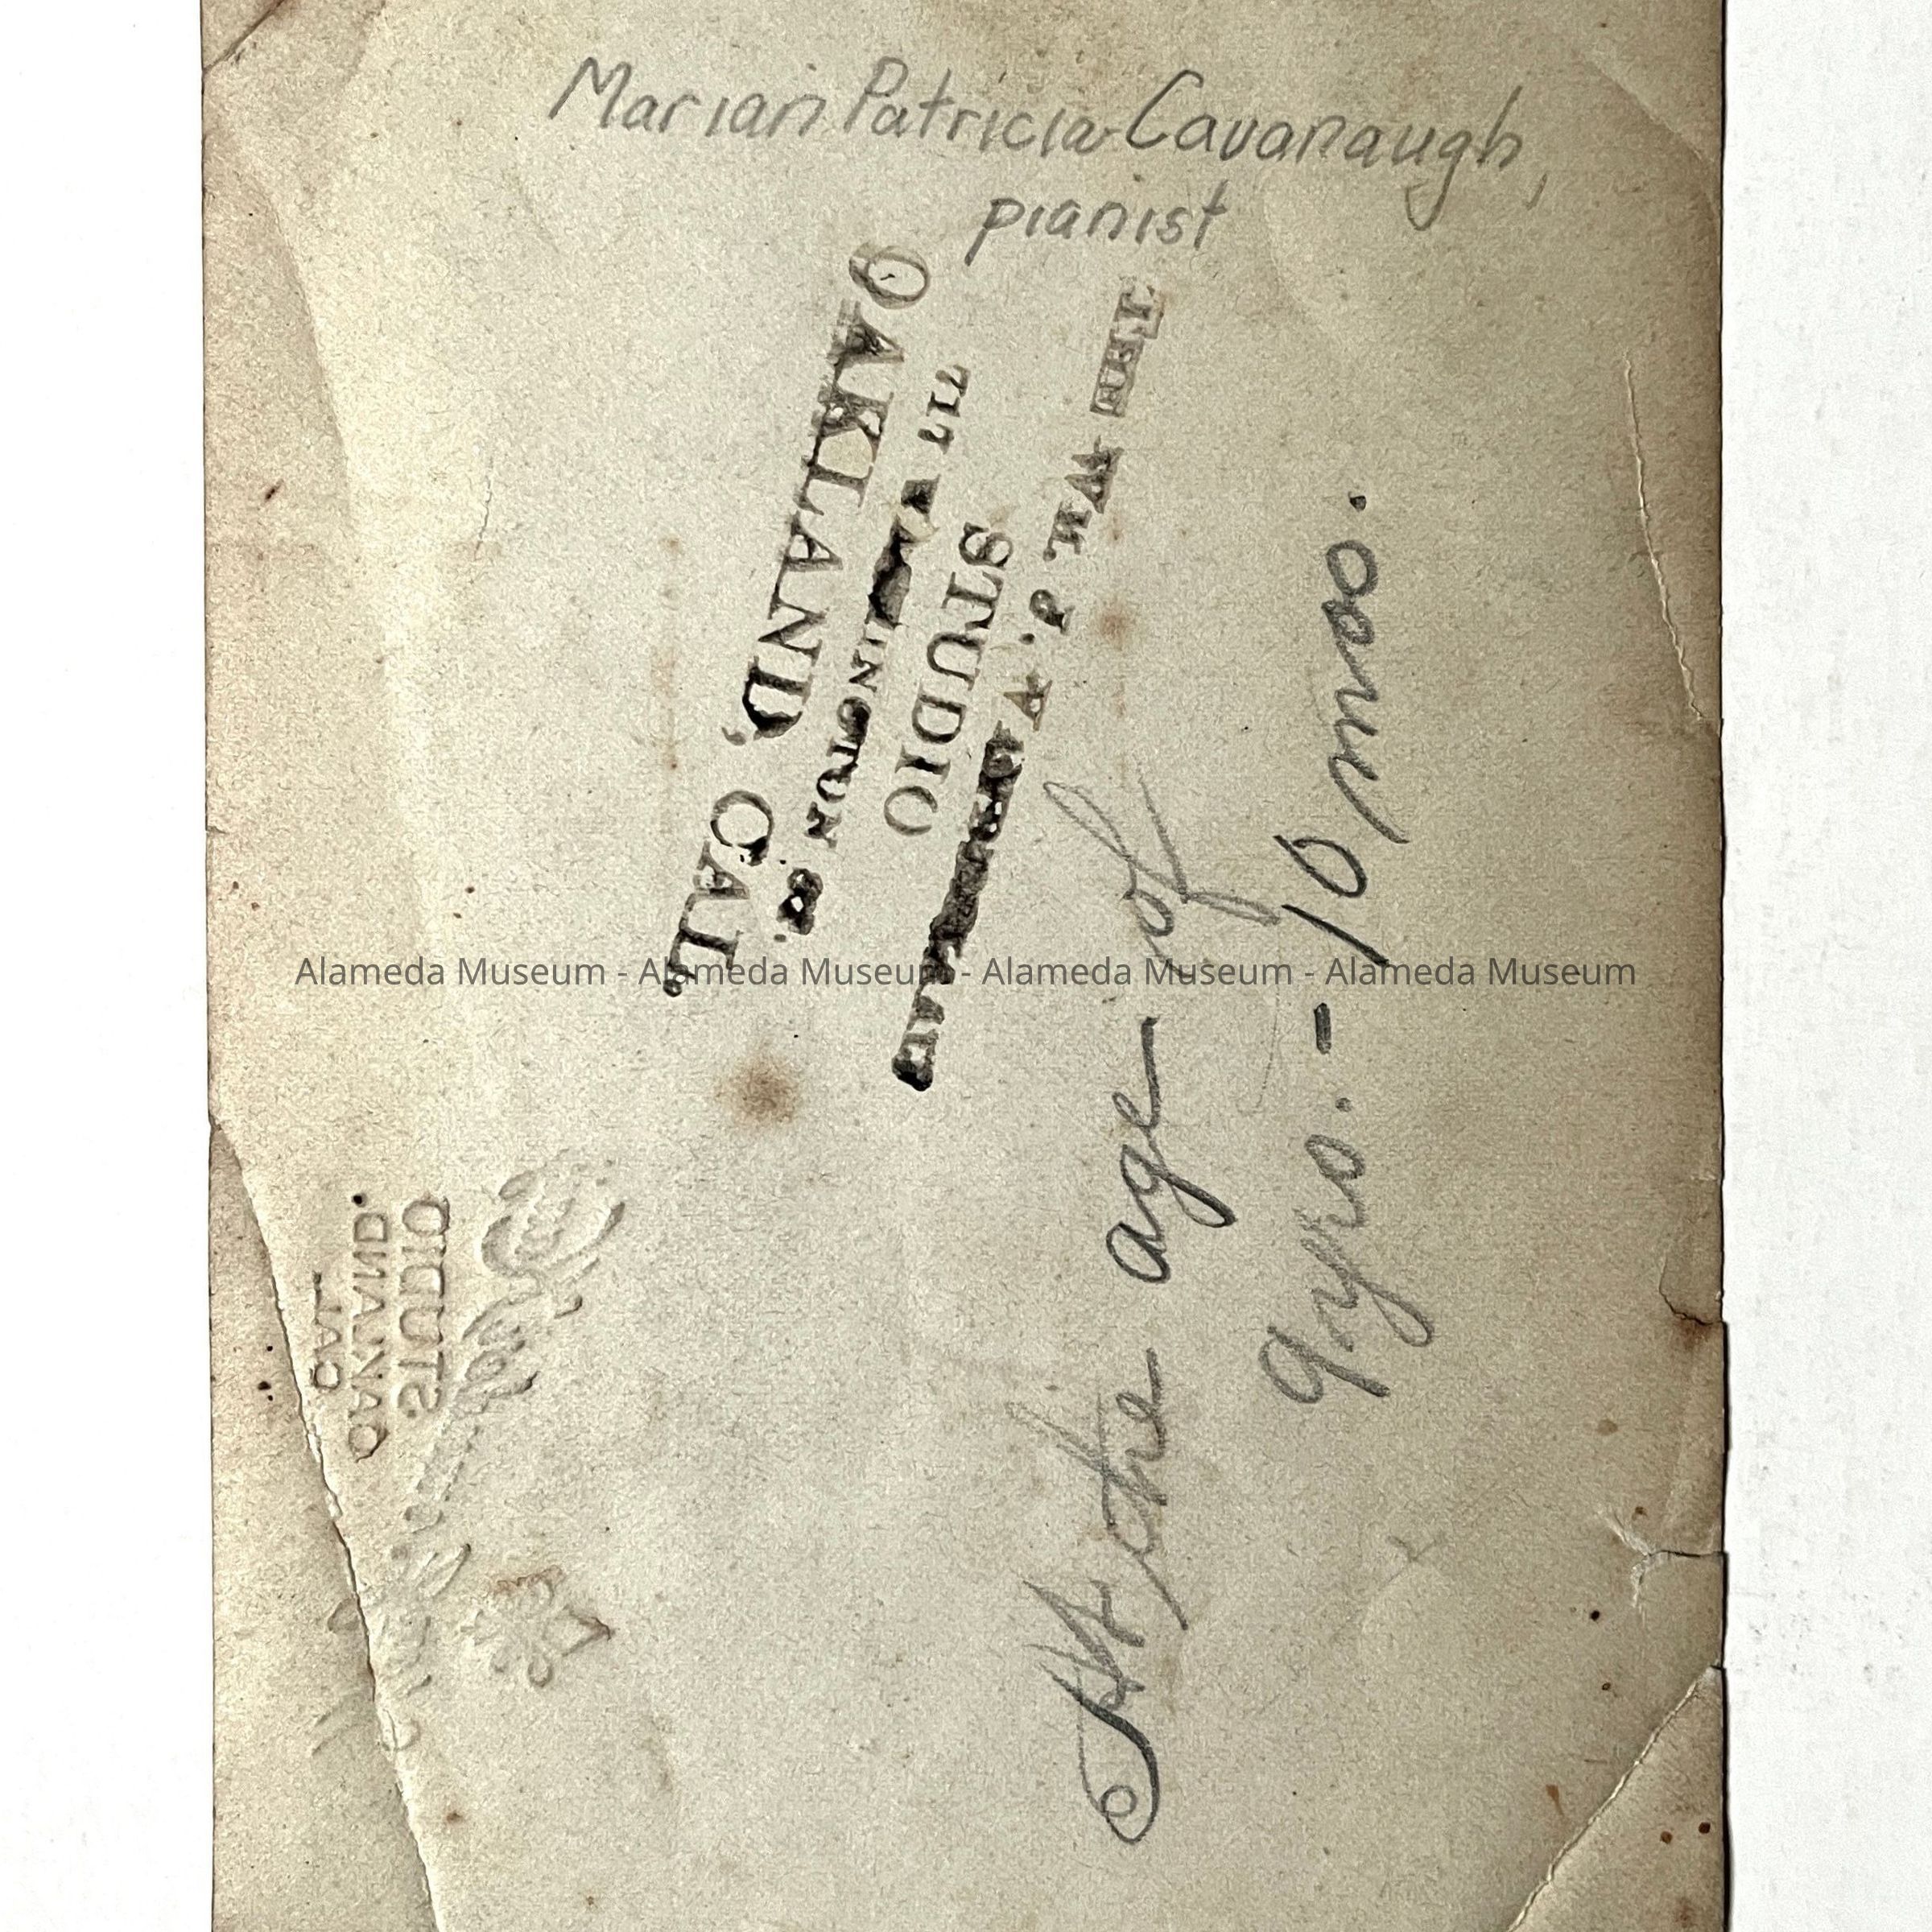 Marian Patricia Cavanaugh,
pianist
THE
STUDIO
OAKLAND, CAL.
At the age of
9 yrs. - 10 mos.
STUDIO
OAKLAND.
CAL
Alameda Museum - Alameda Museum - Alameda Museum - Alameda Museum